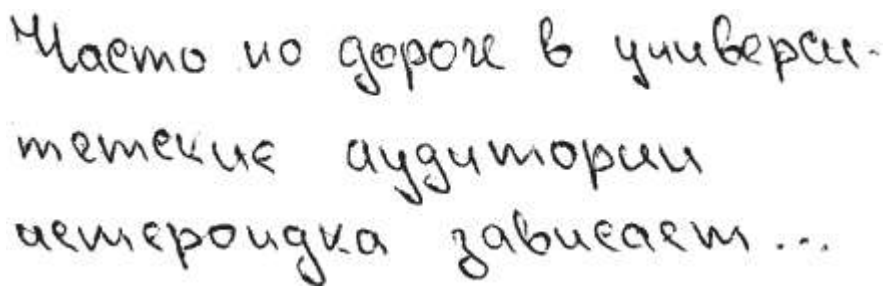 Часто по дороге в универси-
тетские аудитории
астероидка зависает...